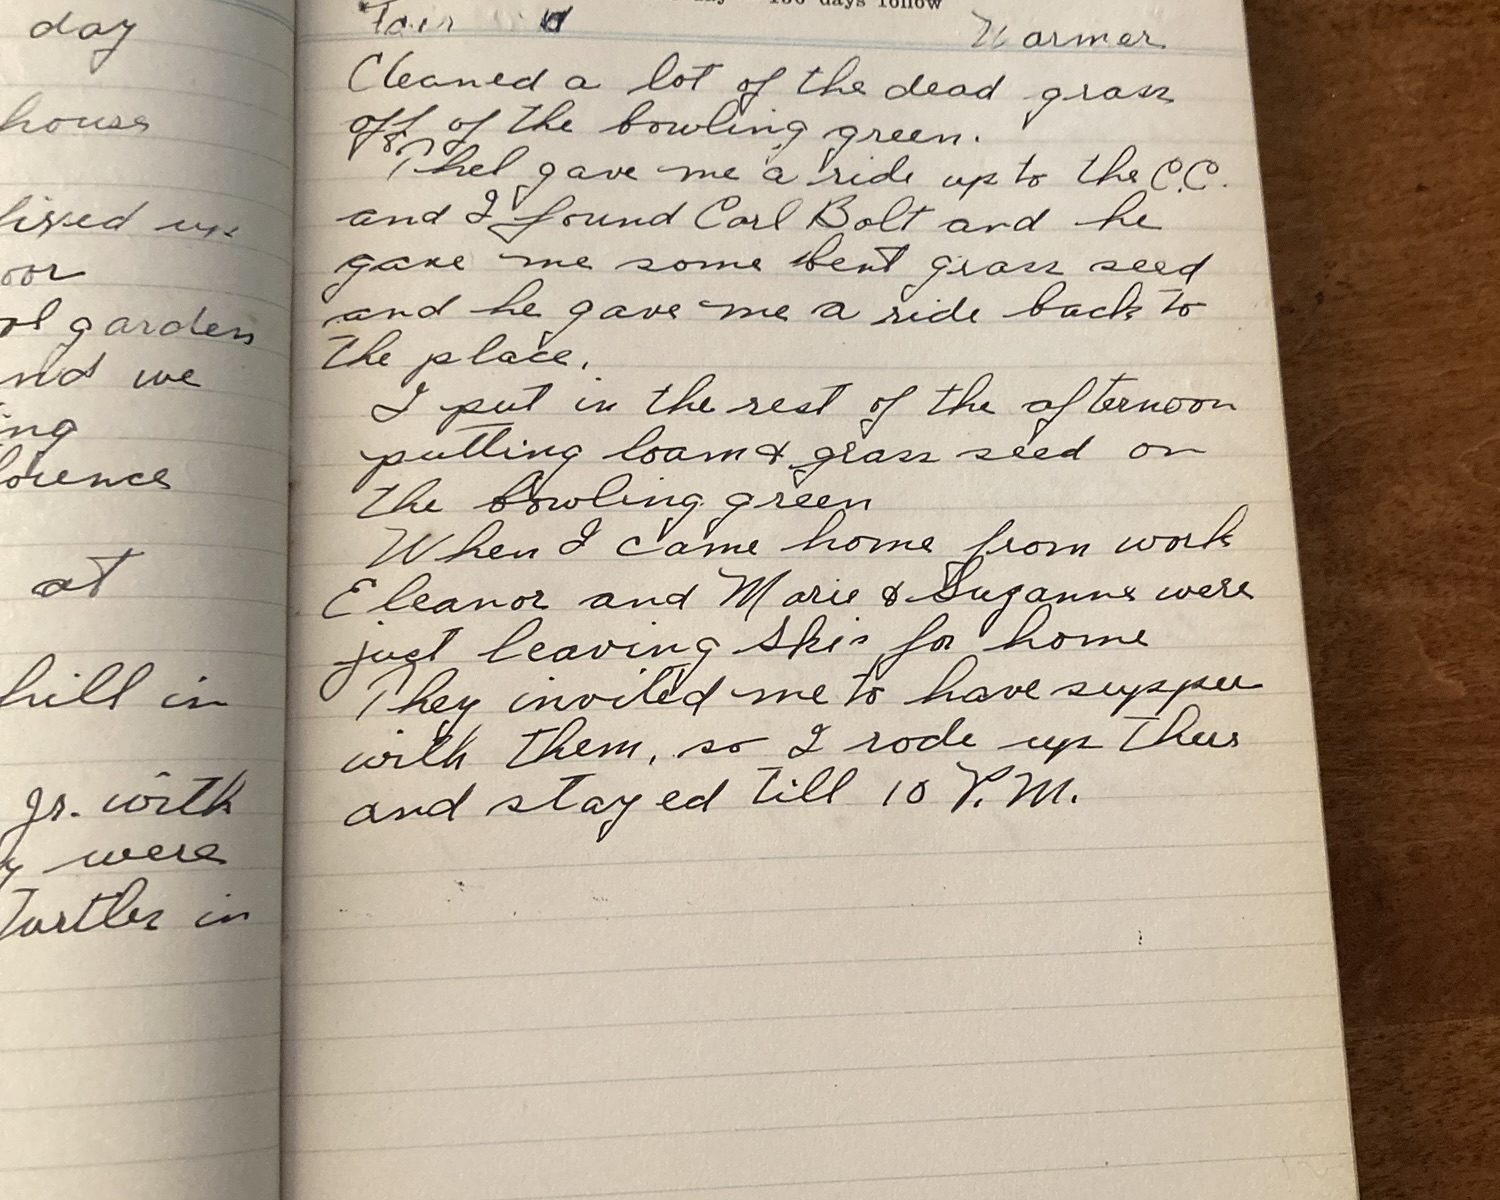 day
house
up
garden
we
at
hill in
Jr. with
were
Turtles in
days follow
Fair Warmer
Cleaned a lot of the dead grass
off of the bowling green.
Thel gave me a ride up to the C.C.
and I found Carl Bolt and he
gave me some bent grass seed
and he gave me a ride back to
the place.
I put in the rest of the afternoon
putting loam & grass seed on
the bowling green
When I came home from work
Eleanor and Marie & Suzanne were
just leaving for home
They invited me to have supper
with them, so I rode up
and stayed till 10 P.M.